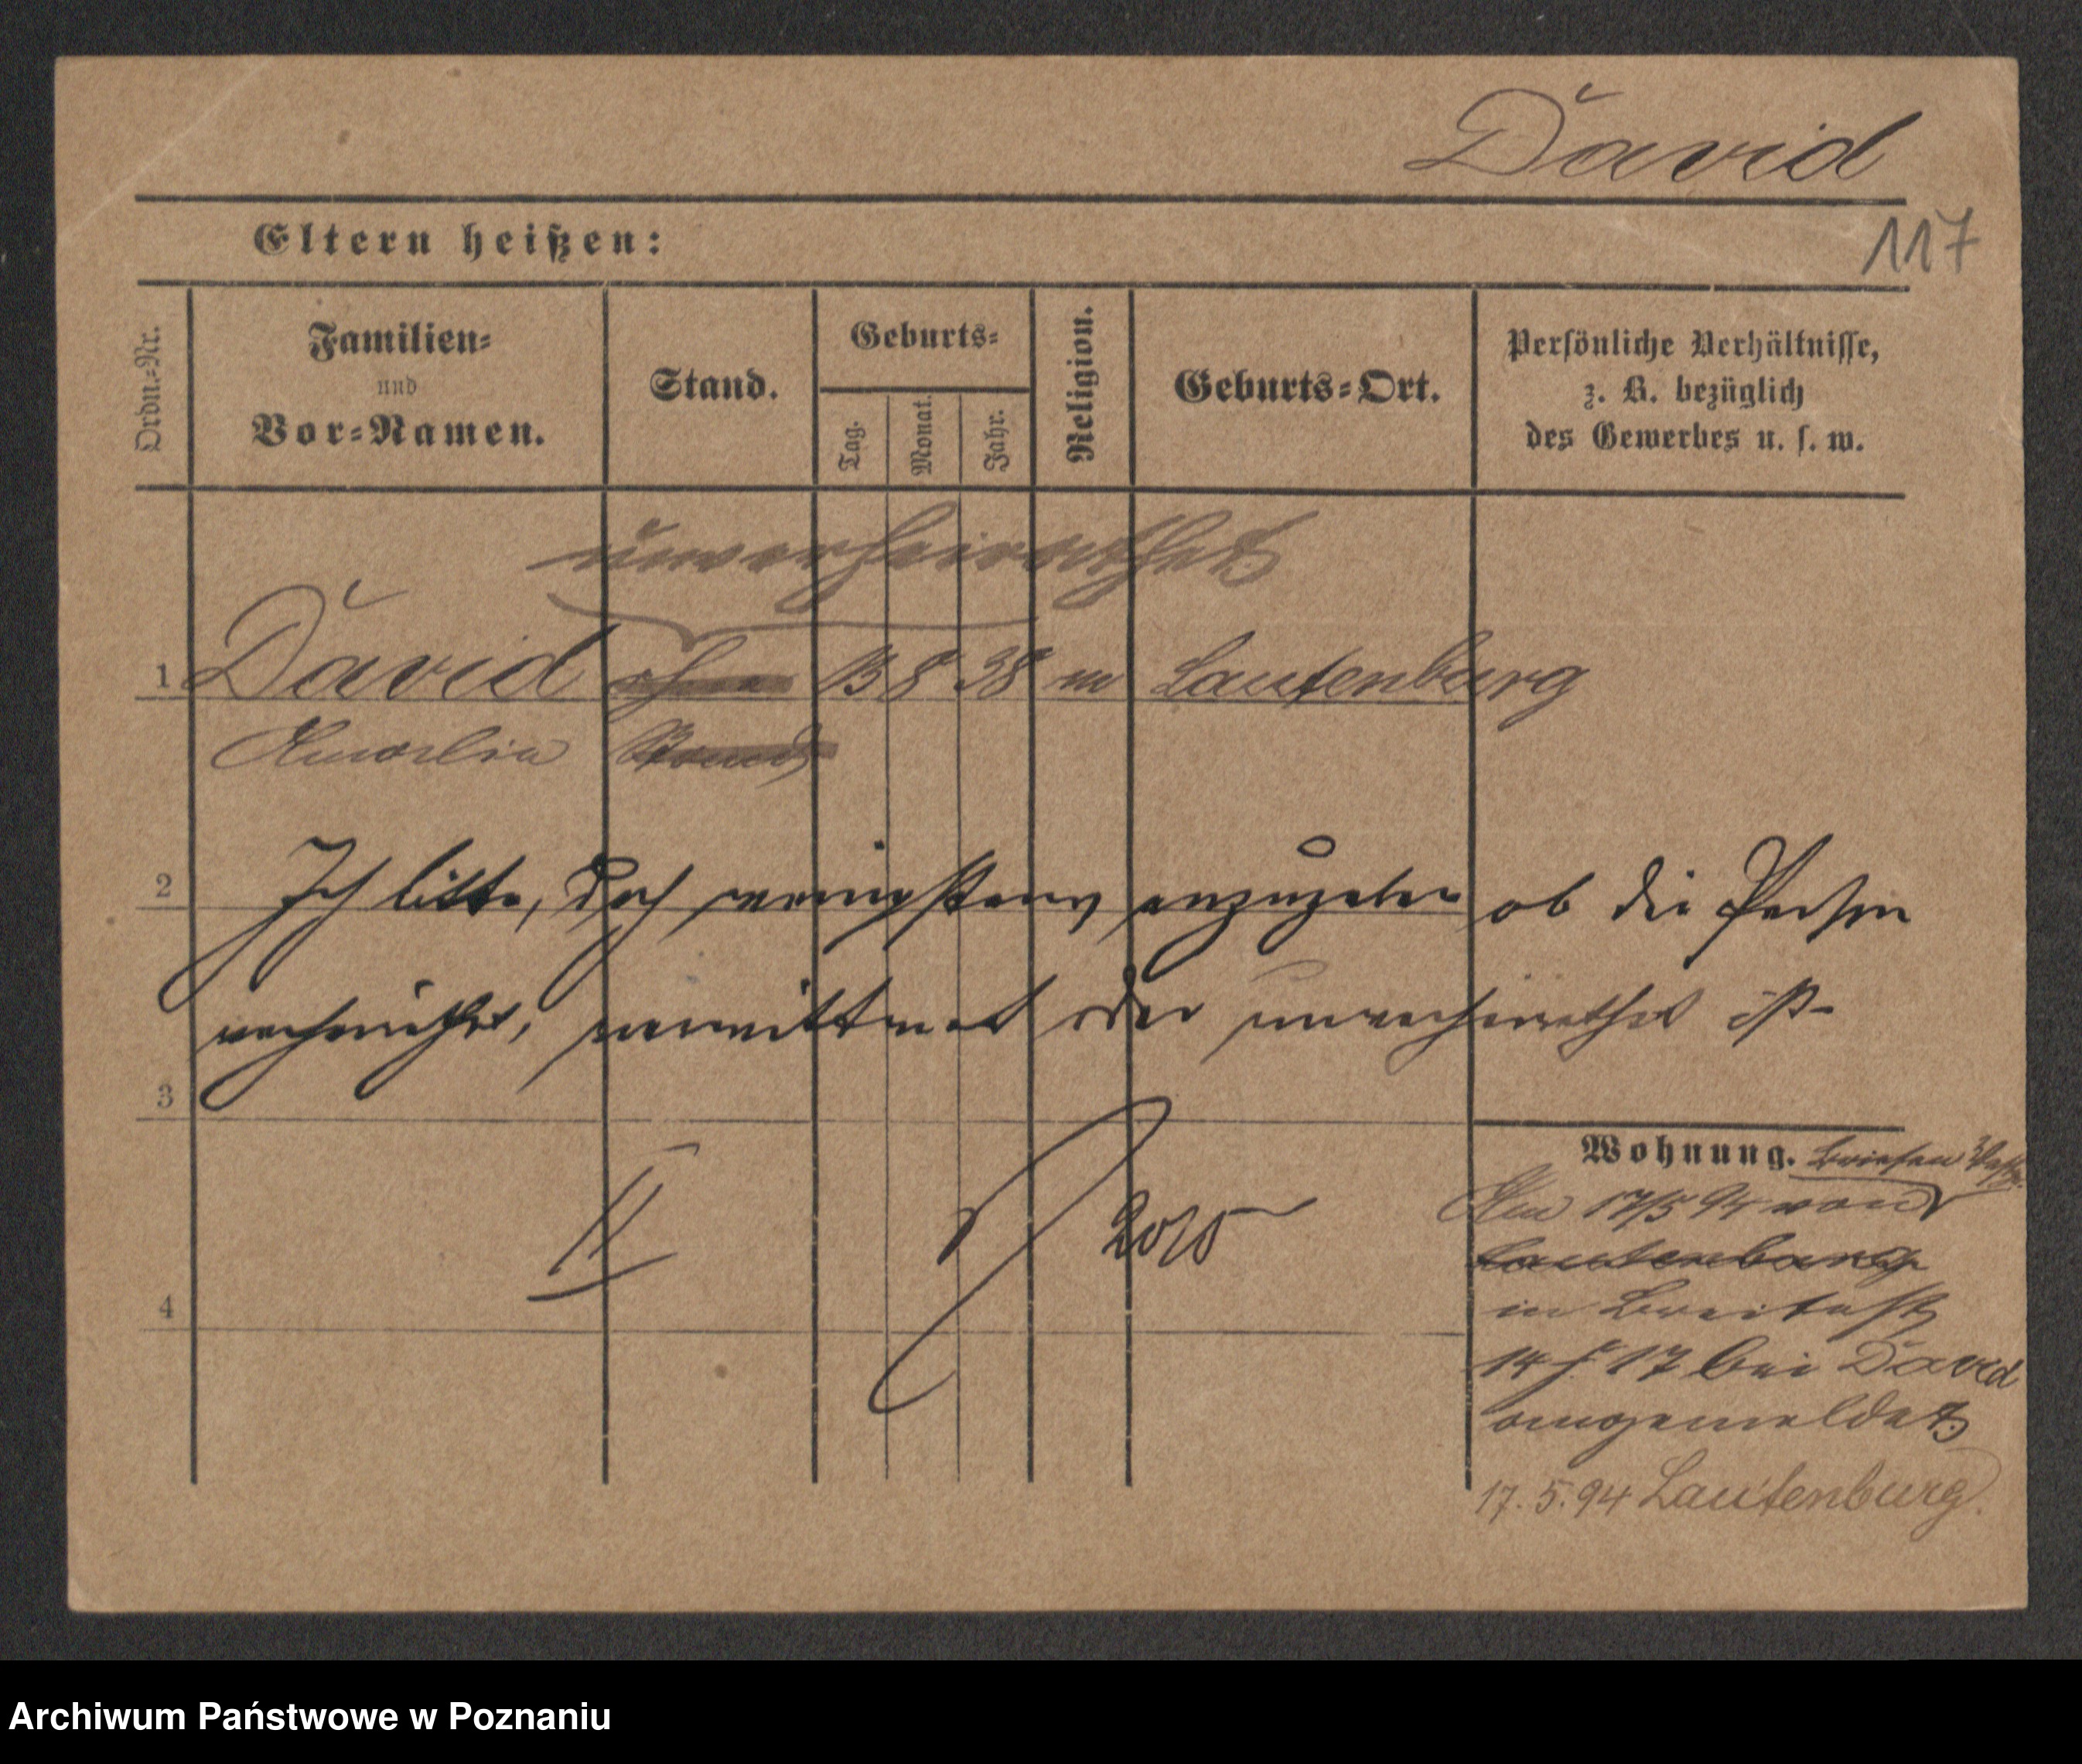 David
117
Eltern heißen:
Ordn.-Nr.
Familien-
und
Vor-Namen.
Stand.
Geburts-
Tag.
Monat.
Jahr.
Religion.
Geburts-Ort.
Persönliche Verhältnisse,
z. B. bezüglich
des Gewerbes u. s. w.
unverheirathet
1 David ohne 13 8 38 m Lautenburg
Amalie Stand
2 Ich bitte, doch wenigstens anzugeben ob die Person
verehelicht, verwittwet oder unverheirathet ist
3
Wohnung. Briesen
Am 17/5 94 von
Lautenburg
in Breitestr
14 f. 17 bei David
angemeldet
II
2010
4
17. 5. 94 Lautenburg.
Archiwum Państwowe w Poznaniu